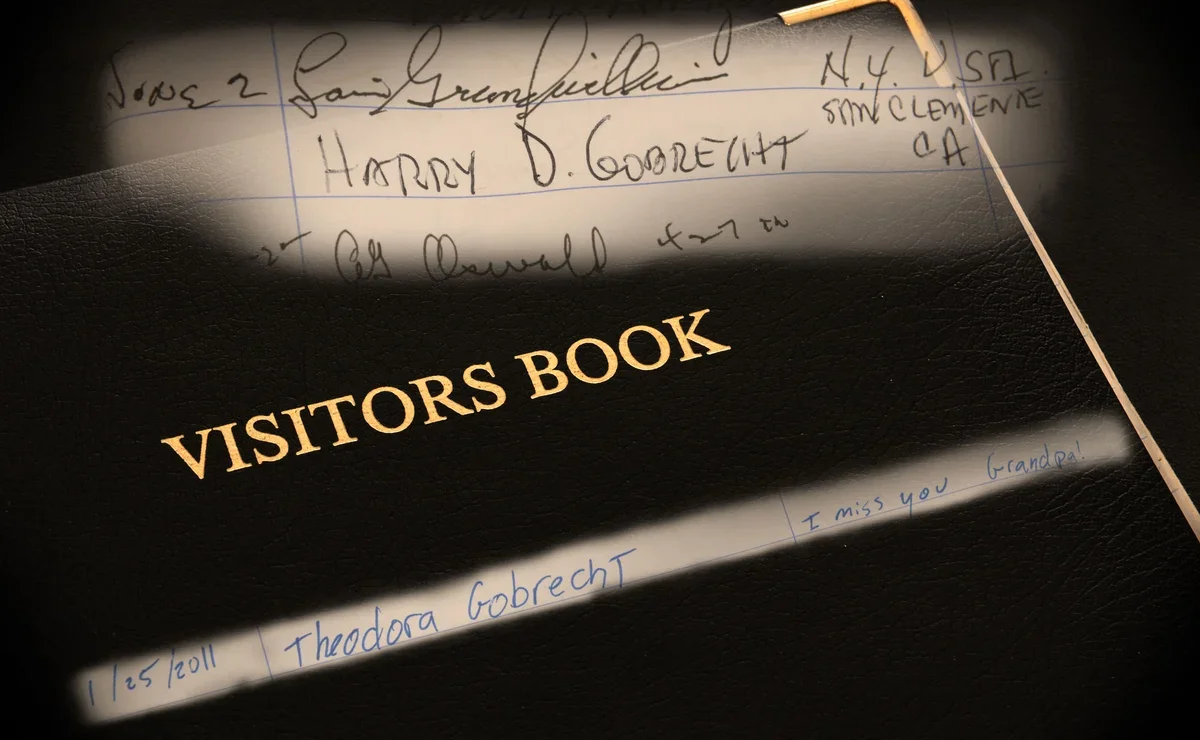 JUNE 2 N.Y. U.S.A.
HARRY D. GOBRECHT SAN CLEMENTE
CA
Oswald
VISITORS BOOK
1/25/2011 Theodora Gobrecht I miss you Grandpa!